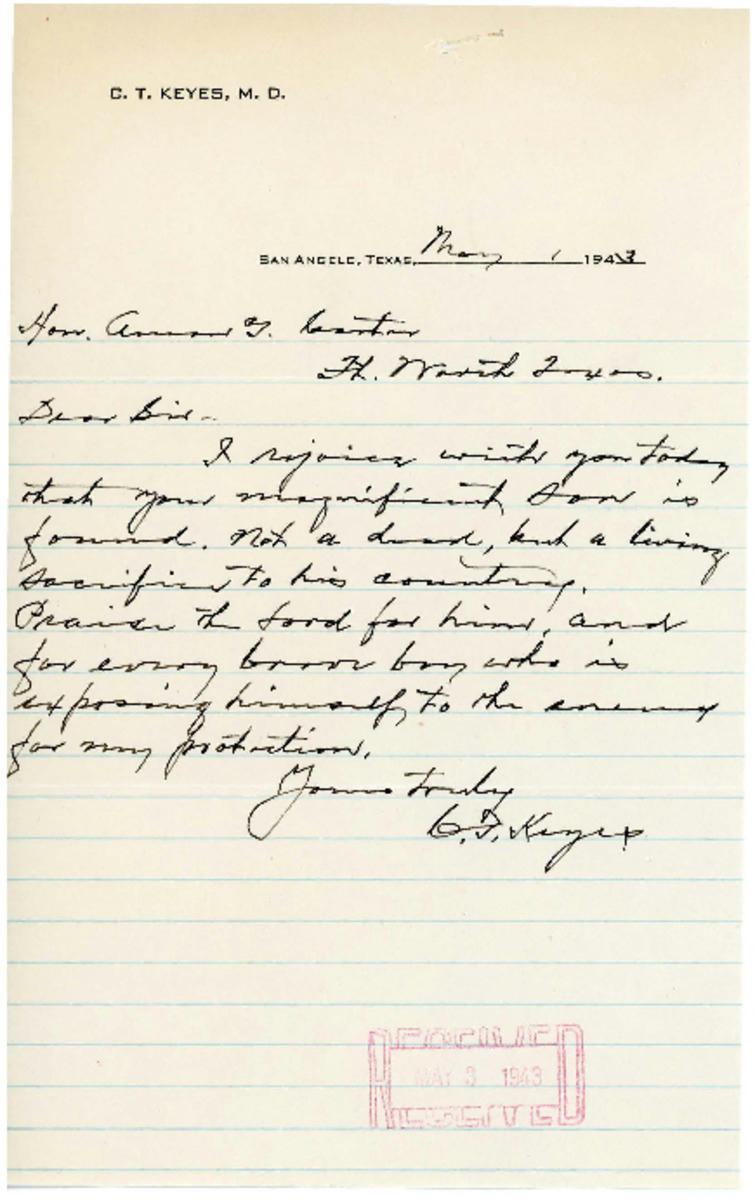 C. T. KEYES, M. D.
SAN ANGELO, TEXAS, May 1 1943
Hon. Amon G. Carter
Ft. Worth Texas.
Dear Sir-
I rejoice with you today
that your magnificent son is
found. Not a dead, but a living
sacrifice to his country.
Praise the Lord for him, and
for every brave boy who is
exposing himself to the enemy
for my protection.
Yours truly
C. T. Keyes
RECEIVED
MAY 3 1943
RECEIVED